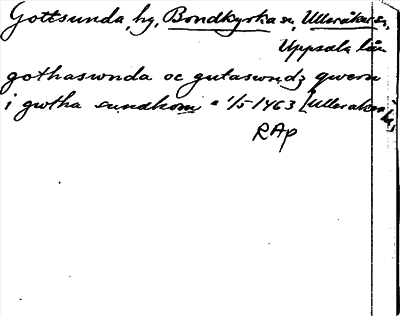 Gottsunda, hg, Bondkyrka sn, Ulleråkers hd,
Uppsala län
gothaswnda oc gutaswndz qwern
i gwtha sundhom 1/5 1463 [Ulleråkers
RAp